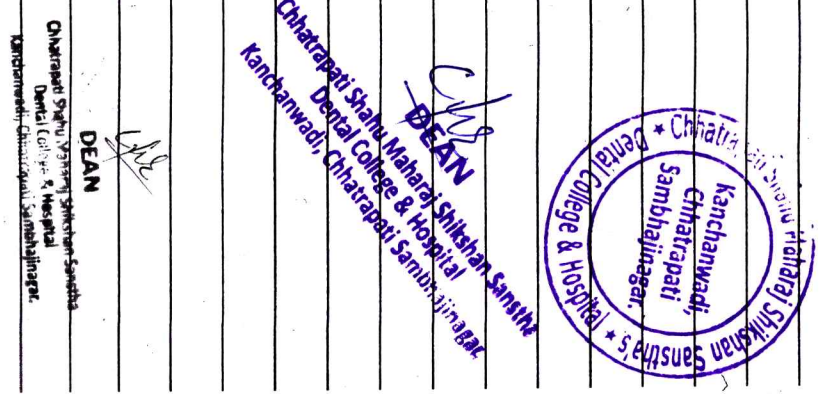 DEAN
Chhatrapati Shahu Maharaj Shikshan Sanstha
Dental College & Hospital
Kanchanwadi, Chhatrapati Sambhajinagar.
DEAN
Chhatrapati Shahu Maharaj Shikshan Sanstha
Dental College & Hospital
Kanchanwadi, Chhatrapati Sambhajinagar.
Chhatrapati Shahu Maharaj Shikshan Sanstha's
Dental College & Hospital
Kanchanwadi,
Chhatrapati
Sambhajinagar.